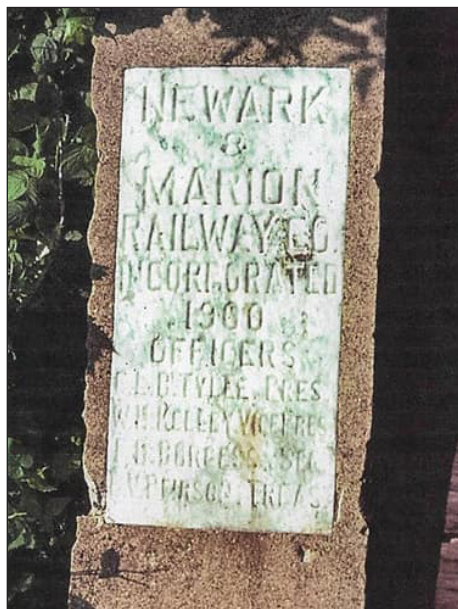 NEWARK
&
MARION
RAILWAY CO.
INCORPORATED
1900
OFFICERS
TYLEE, PRES.
W.H. KELLEY, VICE PRES
BURGESS, SEC
PEIRSON, TREAS